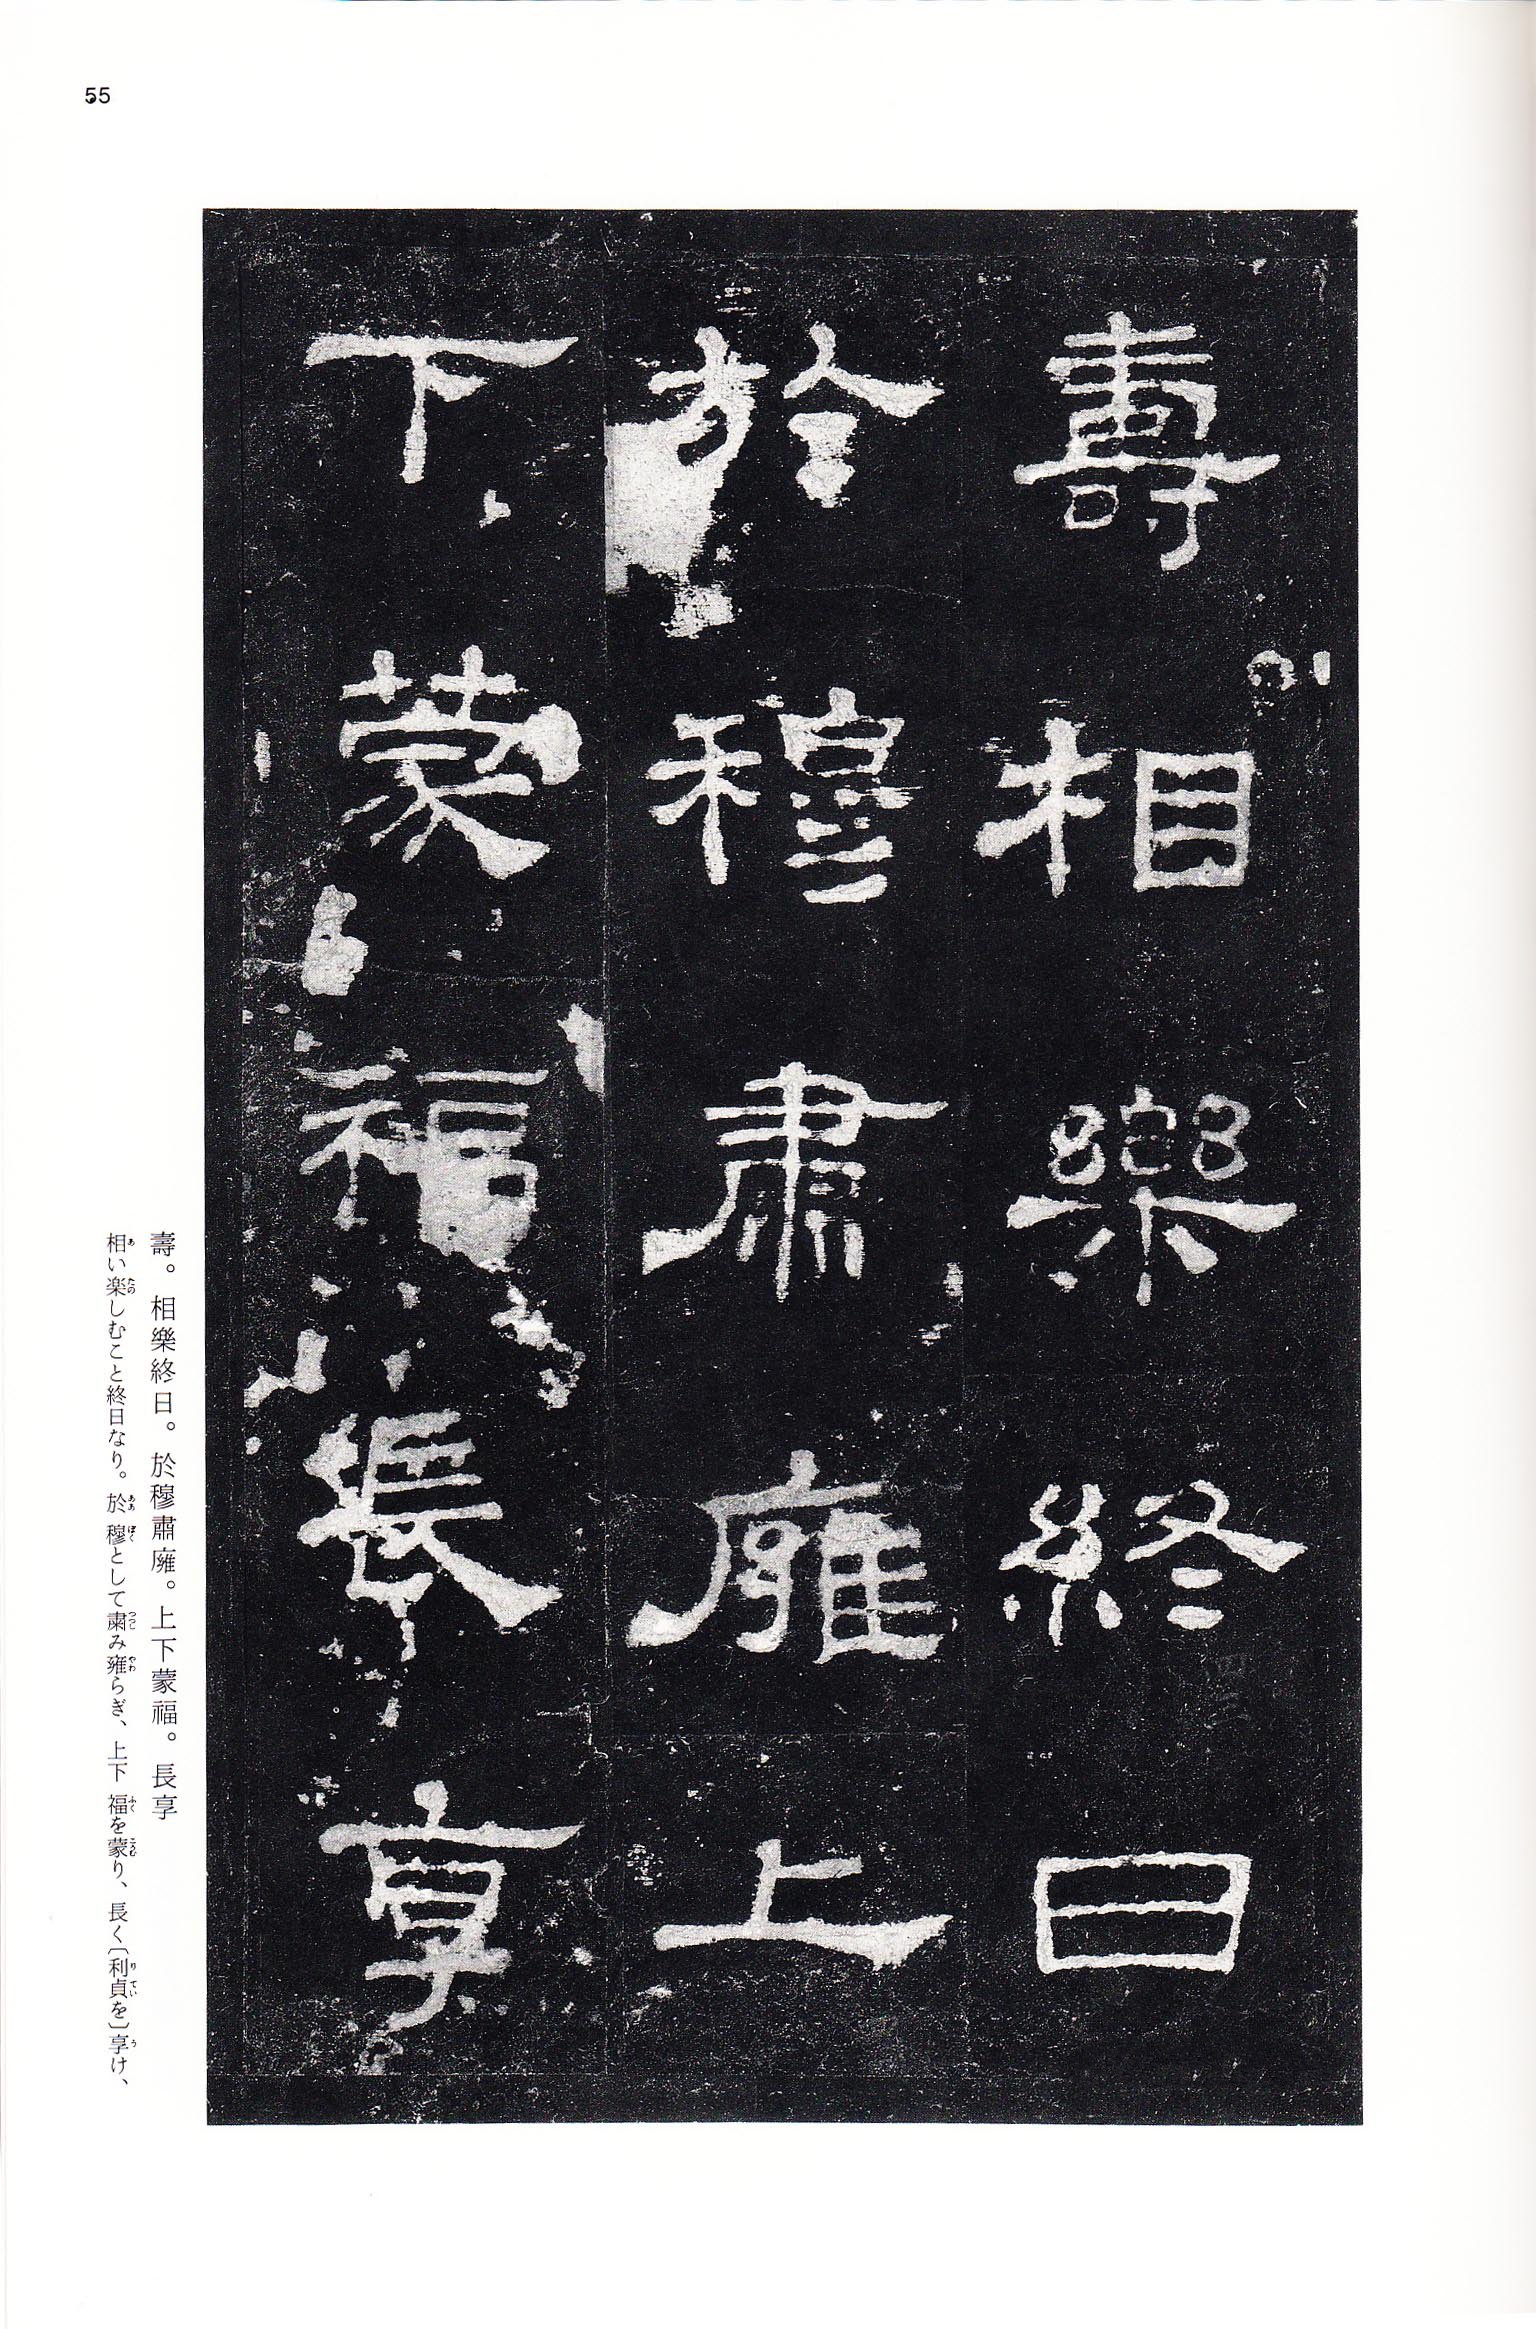 55
壽相樂終日
於穆肅廱上
下蒙福長享
壽。相樂終日。於穆肅廱。上下蒙福。長享
相い楽しむこと終日なり。於穆として粛み雍らぎ、上下 福を蒙り、長く〔利貞を〕享け、